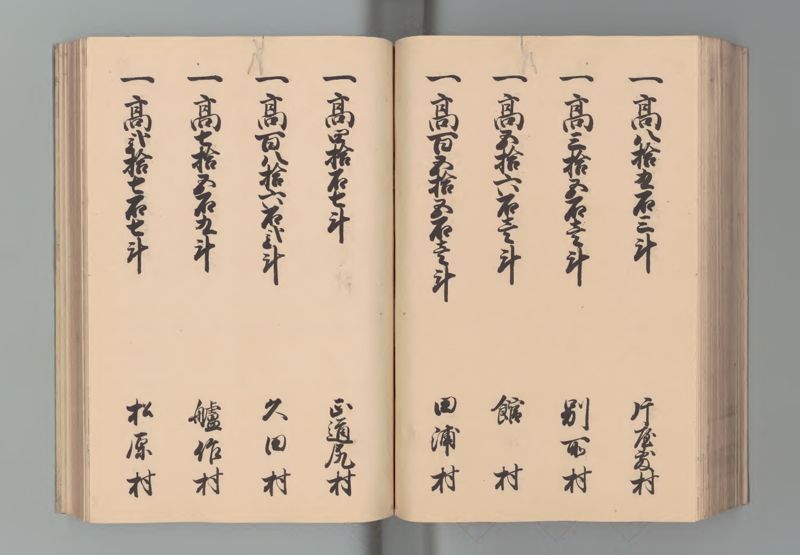 一高八拾五石三斗 片屋敷村
一高三拾五石壱斗 別所村
一高五拾六石壱斗 館村
一高百五拾五石壱斗 田浦村
一高四拾石七斗 正道尻村
一高百八拾六石弐斗 久田村
一高七拾五石九斗 艫作村
一高弐拾七石七斗 松原村